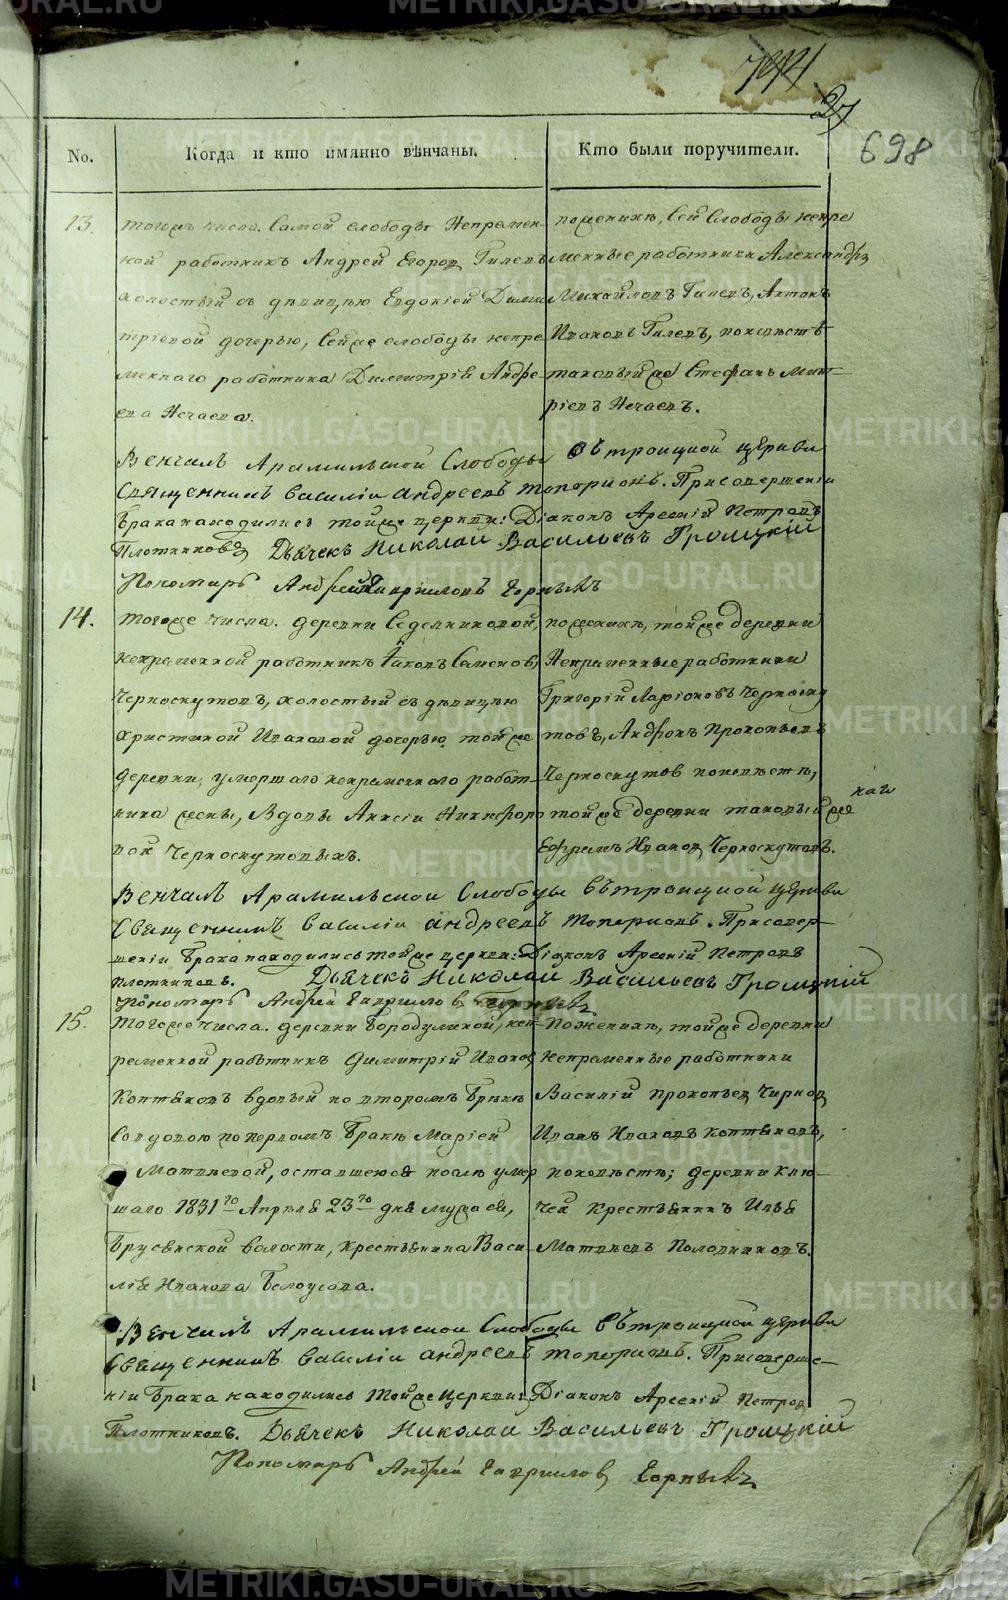 744
27
698
No.
Когда и кто имянно вѣнчаны.
Кто были поручители.
13.
тогожъ числа. Самой слободы Непремен-
ной работникъ Андрей Егоровъ Гилевъ
холостый съ дѣвицею Евдокіей Дими
тріевой дочерью, Сейже слободы непре
меннаго работника Димитрія Андре-
ева Нечаева.
по женихѣ, Сей слободы непре
менные работники Александръ
Михайловъ Гилевъ, Антонъ
Ивановъ Гилевъ, по невѣстѣ
таковый же Стефанъ Мит-
ріевъ Нечаевъ.
Венчалъ Арамильской Слободы въ троицкой церкви
Священникъ василій андреевъ топорковъ. При совершеніи
брака находились тойже церкви: Діаконъ Арсеній Петровъ
Плотниковъ Дьячекъ Николай Васильевъ Громцкій
Пономарь Андрей Гавриловъ
14.
тогоже числа. деревни Седельниковой,
непременной работникъ Іаковъ Семеновъ
Черноскутовъ, холостый съ дѣвицею
Христиной Ивановой дочерью, тойже
деревни, умершаго непременнаго работ-
ника жены, вдовы Никифоро
вой Черноскутовыхъ.
по женихѣ, тойже деревни
Непременные работники
Григорій Ларіоновъ Черноску
товъ, Андронъ Прокопьевъ
Черноскутов по невѣстѣ,
тойже деревни таковый же
Ефремъ Иванов Черноскутовъ.
Венчалъ Арамильской Слободы въ троицкой церкви
Священникъ василій андреевъ топорковъ. При совер-
шеніи брака находились тойже церкви: Діаконъ Арсеній Петровъ
Плотниковъ. Дьячекъ Николай Васильевъ Громцкій
Пономарь Андрей Гавриловъ
15.
тогоже числа. деревни Бородулиной, неп-
ременной работникъ Димитрій Иванов
Коптяковъ вдовый по второмъ бракѣ
Со вдовою по первомъ бракѣ Маріей
Матвеевой, оставшеюся послѣ умер
шаго 1831го Апреля 23го дня мужа ея,
Брусянской волости, крестьянина Васи-
лія Иванова Белоусова.
По женихѣ, тойже деревни
непременные работники
Василій Прокопьев Чирков
Иванъ Ивановъ Коптяковъ,
по невѣстѣ; деревни Клю-
чей крестьянинъ Илья
Матвеевъ Половниковъ.
Венчалъ Арамильской Слободы въ троицкой церкви
Священникъ василій андреевъ топорковъ. При соверше-
ніи брака находились тойже церкви: Діаконъ Арсеній Петров
Плотниковъ. Дьячекъ Николай Васильевъ Громцкій
Пономарь Андрей Гавриловъ
METRIKI.GASO-URAL.RU